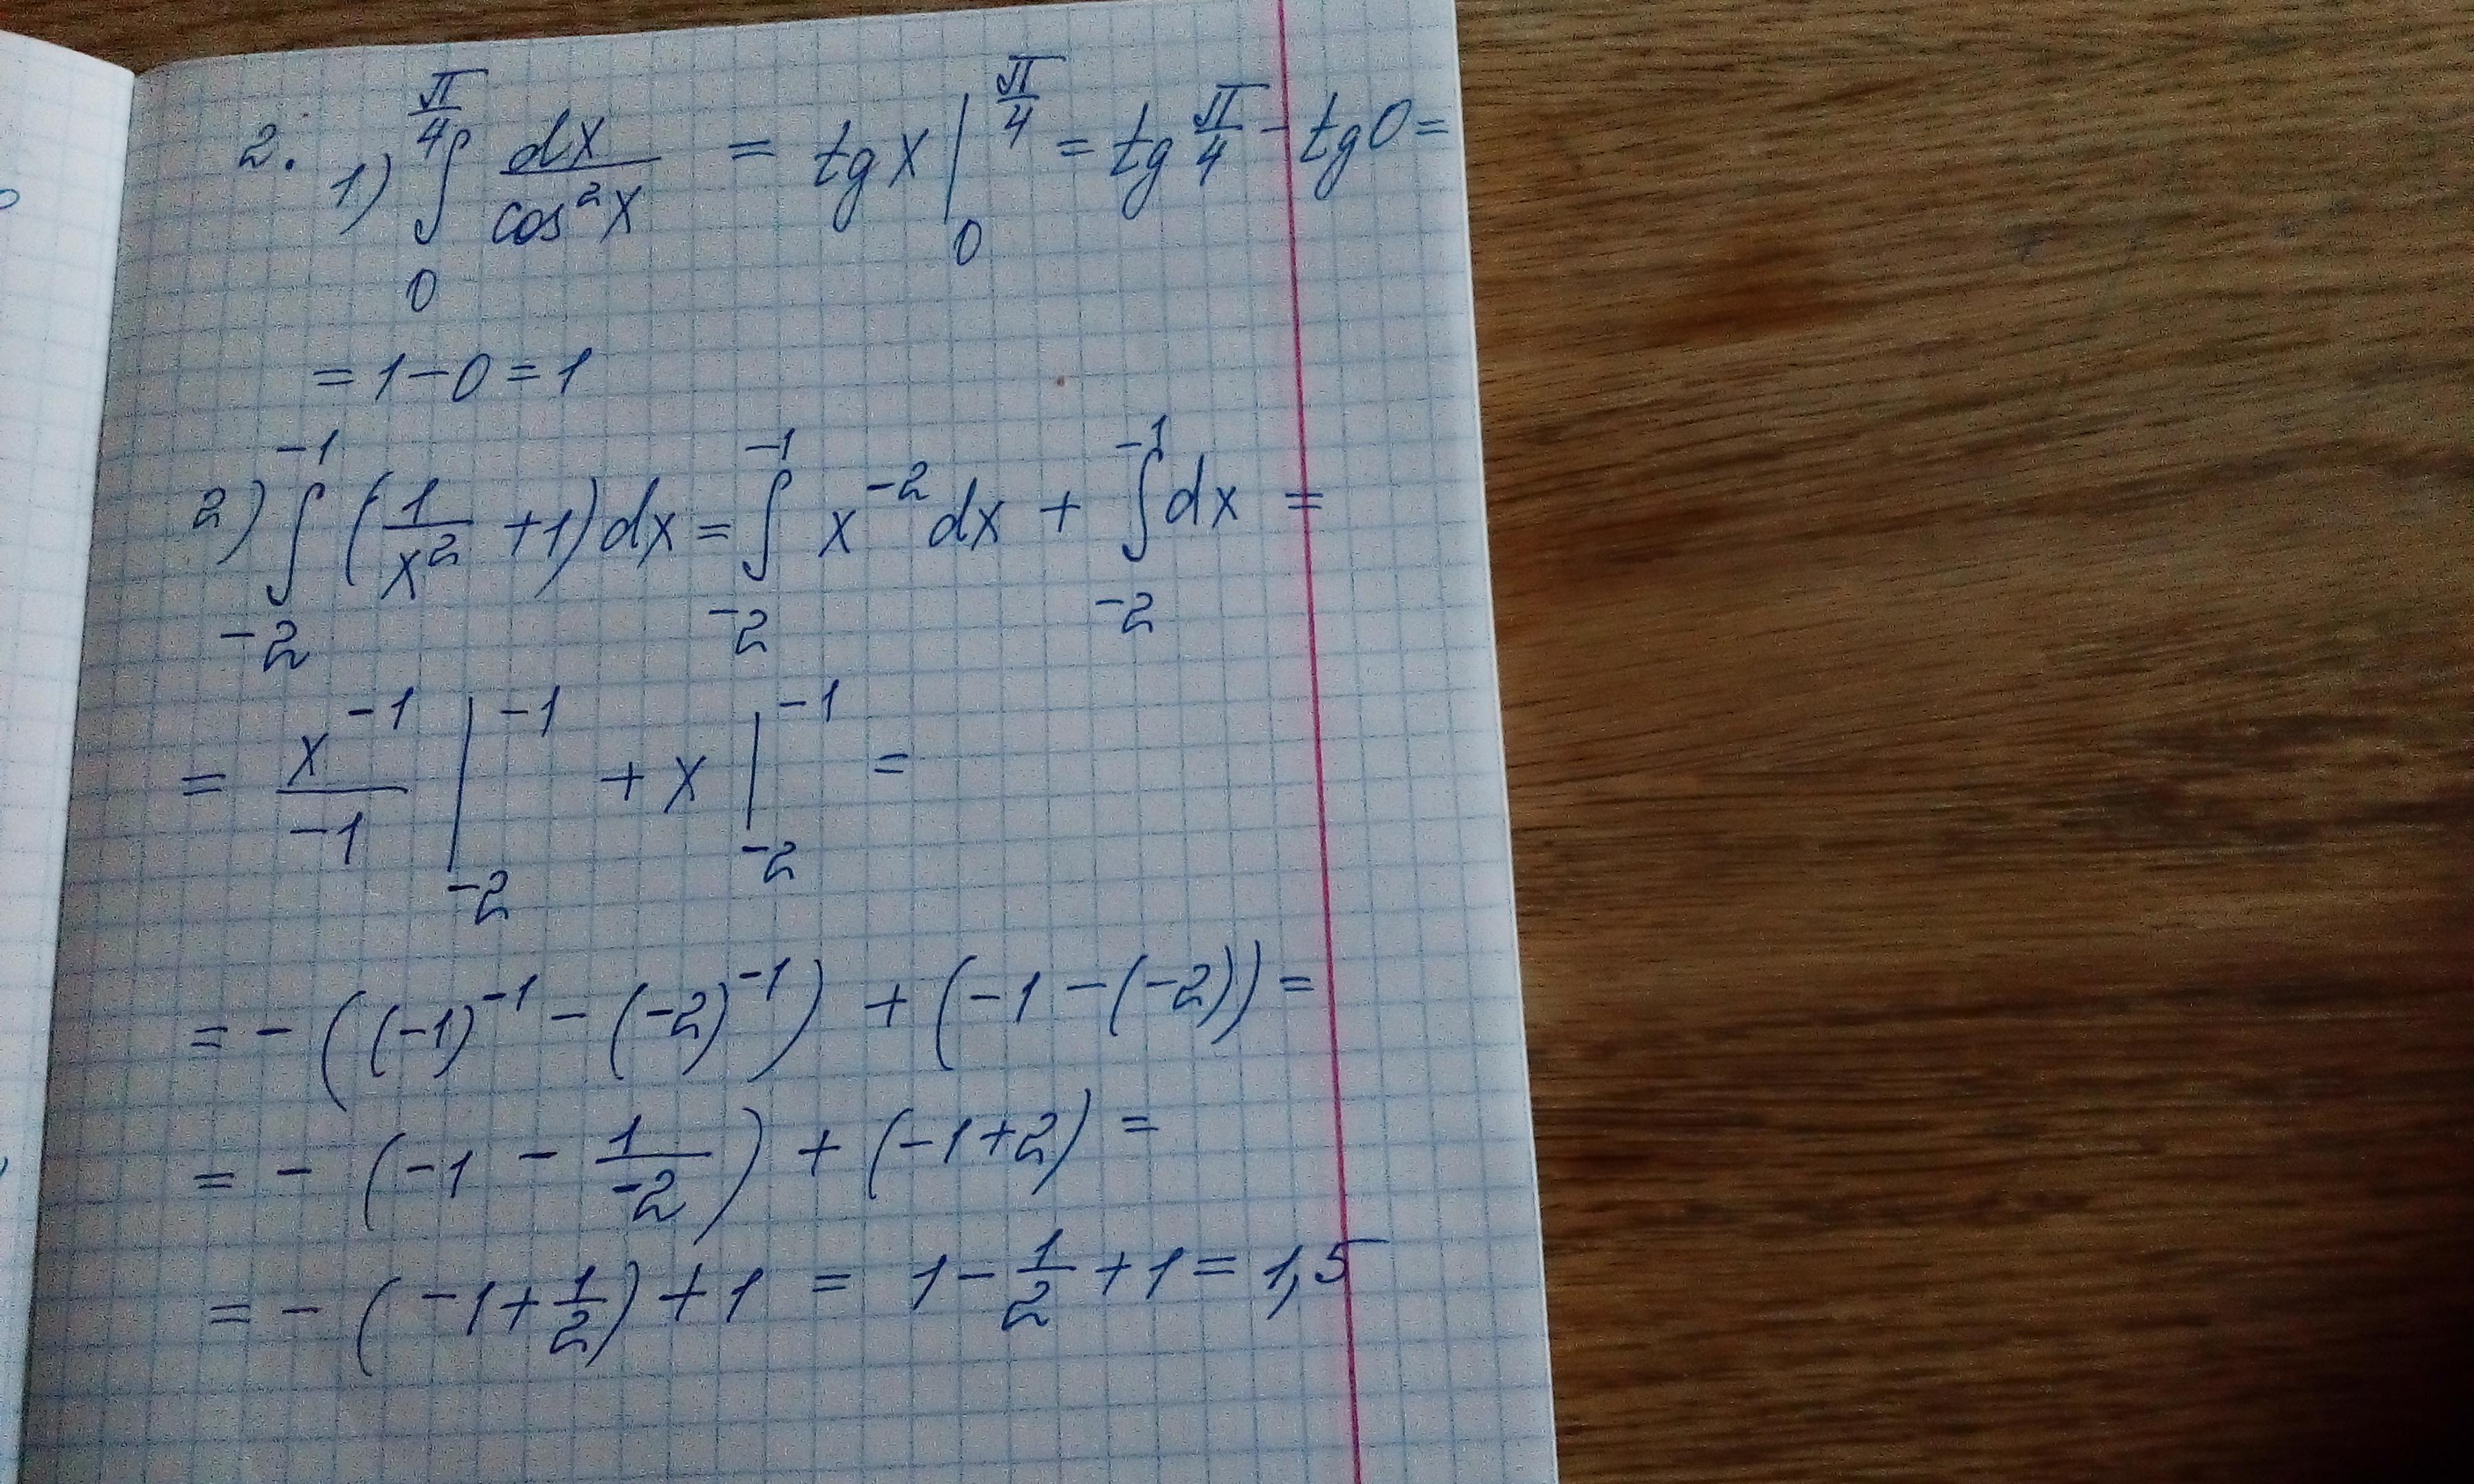 2. 1) ∫₀^(π/4) dx/cos²x = tg x |₀^(π/4) = tg π/4 - tg 0 =
= 1 - 0 = 1
2) ∫₋₂^(-1) (1/x² + 1) dx = ∫₋₂^(-1) x⁻² dx + ∫₋₂^(-1) dx =
= x⁻¹/-1 |₋₂^(-1) + x |₋₂^(-1) =
= - ((-1)⁻¹ - (-2)⁻¹) + (-1 - (-2)) =
= - (-1 - 1/-2) + (-1+2) =
= - (-1 + 1/2) + 1 = 1 - 1/2 + 1 = 1,5